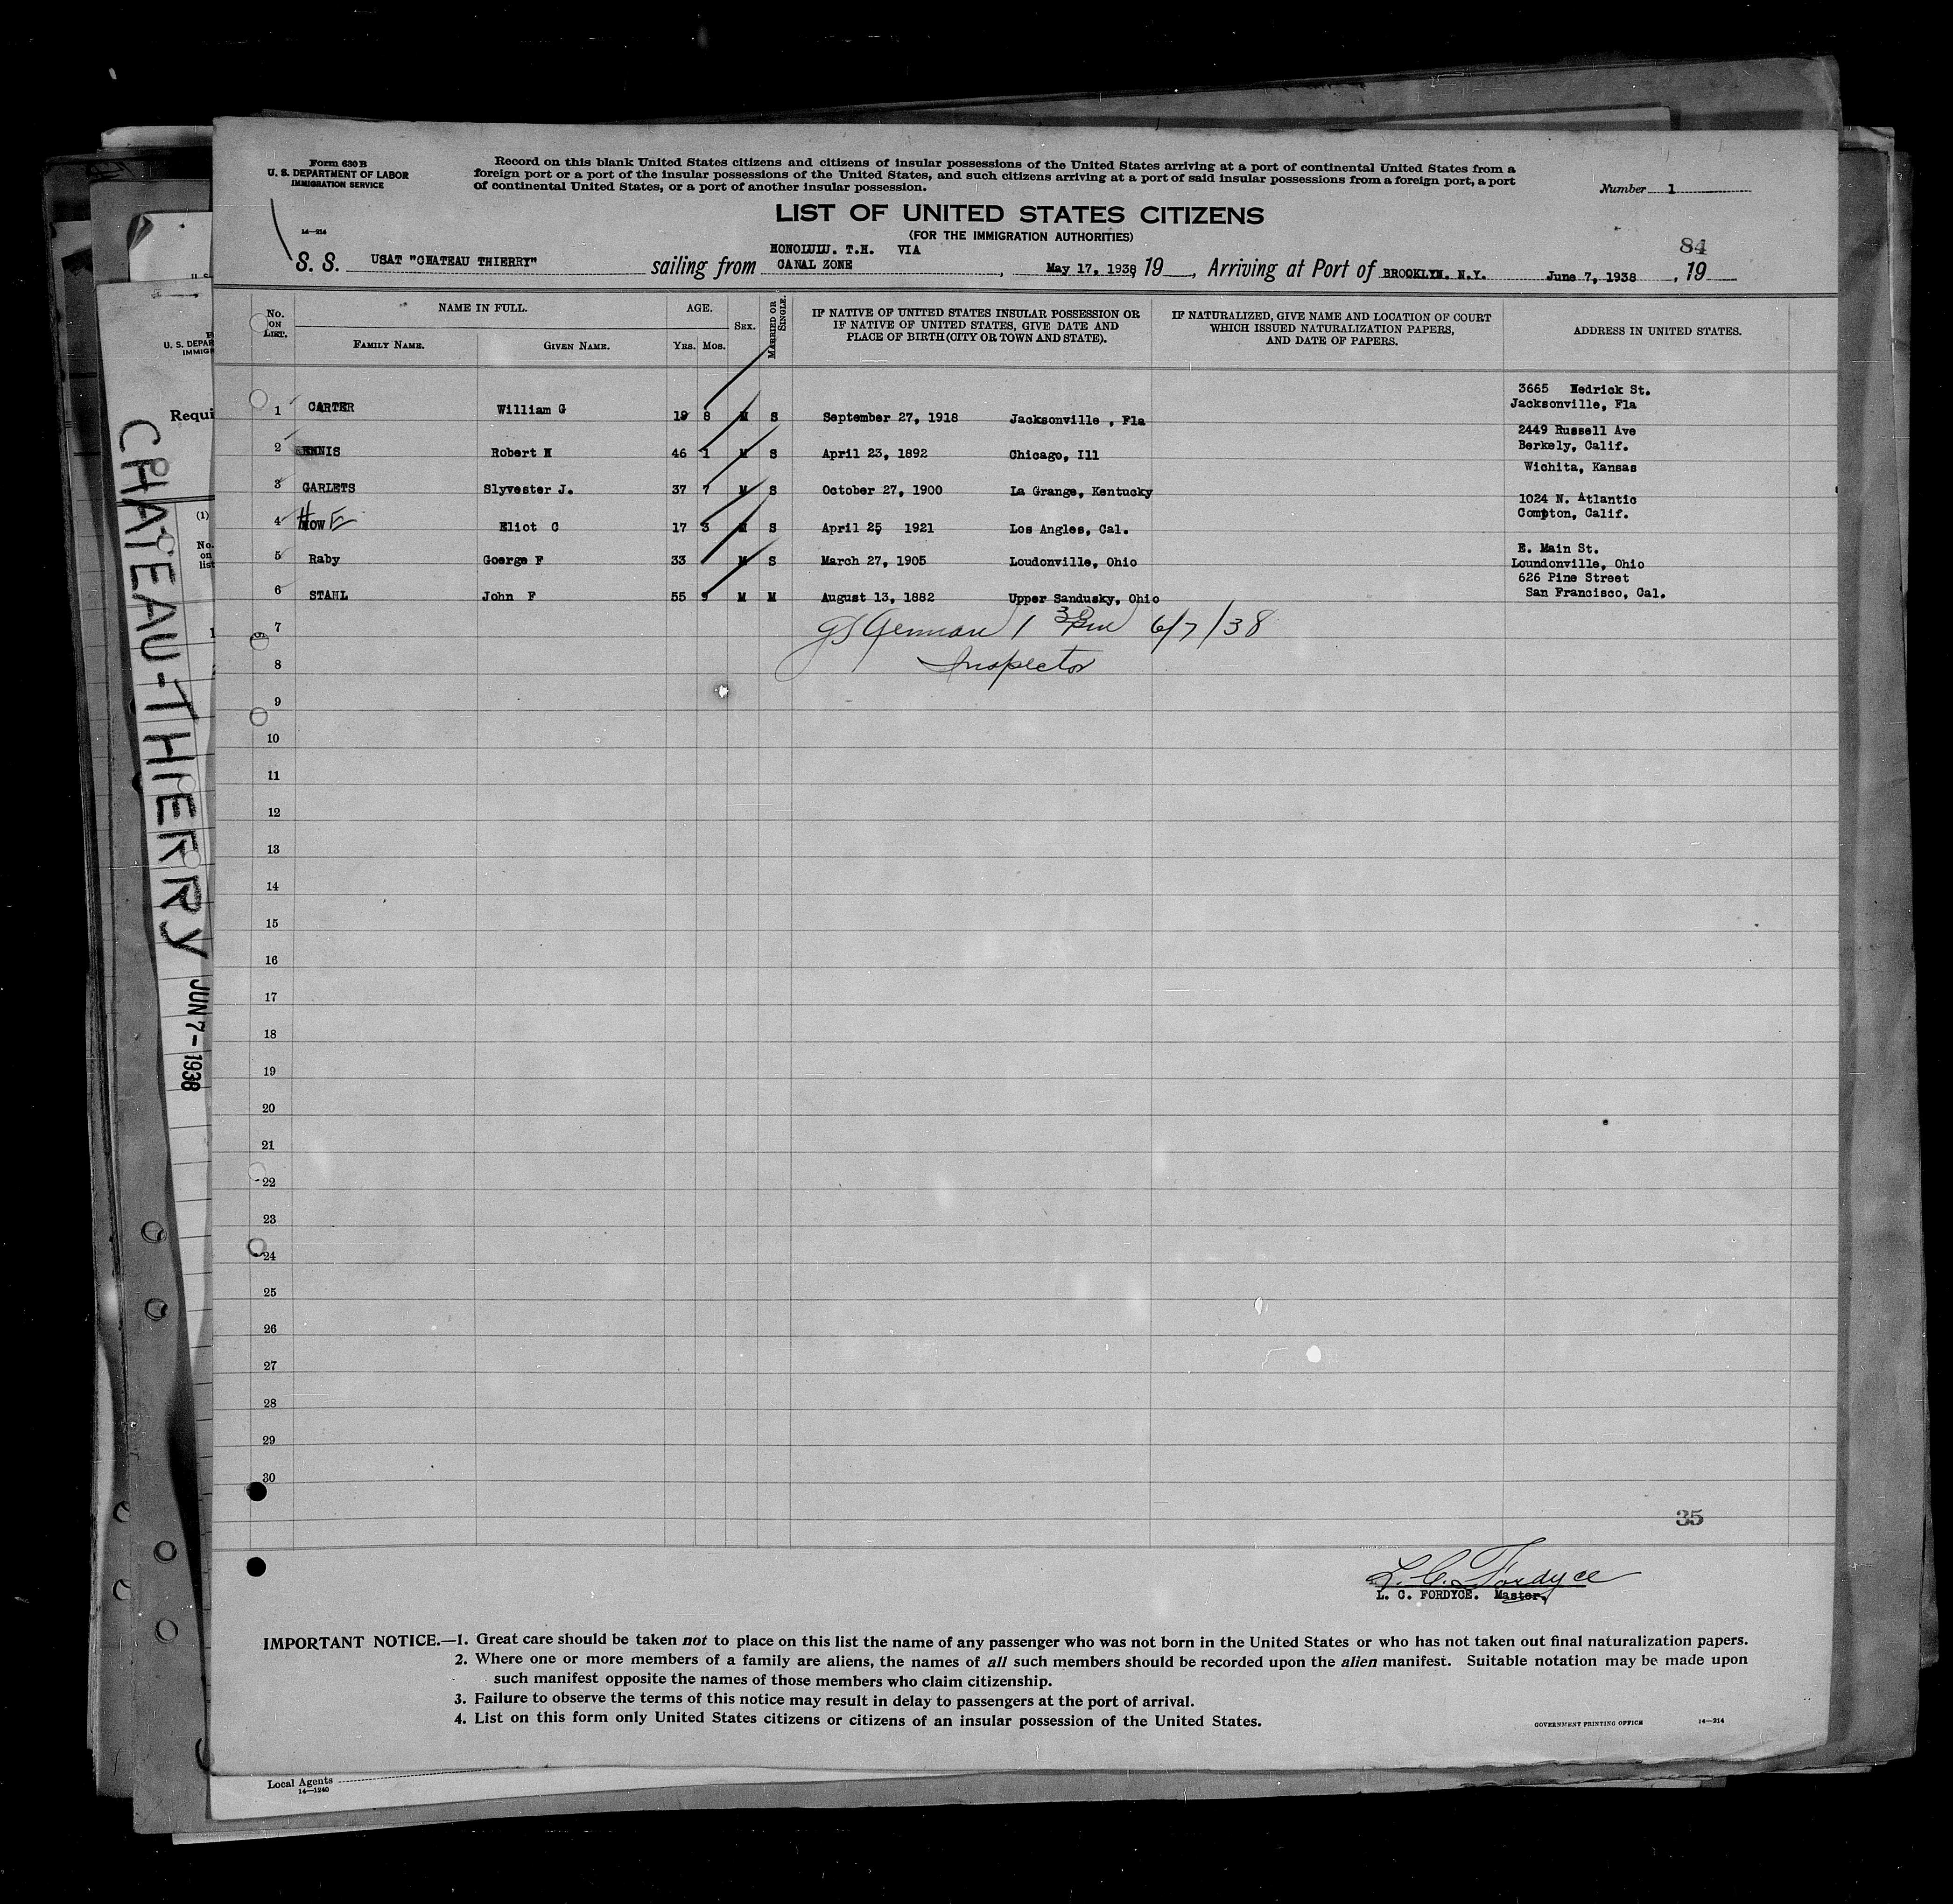 Form 630 B
U. S. DEPARTMENT OF LABOR
IMMIGRATION SERVICE
14—214
Record on this blank United States citizens and citizens of insular possessions of the United States arriving at a port of continental United States from a
foreign port or a port of the insular possessions of the United States, and such citizens arriving at a port of said insular possessions from a foreign port, a port
of continental United States, or a port of another insular possession.
Number 1
LIST OF UNITED STATES CITIZENS
(FOR THE IMMIGRATION AUTHORITIES)
84
HONOLULU. T.H. VIA
S. S. USAT "CHATEAU THIERRY" sailing from CANAL ZONE, May 17, 1938, 19, Arriving at Port of BROOKLYN. N.Y. June 7, 1938, 19
No. ON LIST.
NAME IN FULL.
FAMILY NAME.
GIVEN NAME.
AGE.
YRS. MOS.
SEX.
MARRIED OR SINGLE.
IF NATIVE OF UNITED STATES INSULAR POSSESSION OR
IF NATIVE OF UNITED STATES, GIVE DATE AND
PLACE OF BIRTH (CITY OR TOWN AND STATE).
IF NATURALIZED, GIVE NAME AND LOCATION OF COURT
WHICH ISSUED NATURALIZATION PAPERS,
AND DATE OF PAPERS.
ADDRESS IN UNITED STATES.
3665 Hedrick St.
1 CARTER William G 19 8 M S September 27, 1918 Jacksonville , Fla Jacksonville, Fla
2449 Russell Ave
2 ENNIS Robert H 46 1 M S April 23, 1892 Chicago, Ill Berkely, Calif.
3 GARLETS Slyvester J. 37 7 M S October 27, 1900 La Grange, Kentucky Wichita, Kansas
1024 N. Atlantic
4 HowE Eliot C 17 3 M S April 25, 1921 Los Angles, Cal. Compton, Calif.
E. Main St.
5 Raby Goerge F 33 M S March 27, 1905 Loudonville, Ohio Loundonville, Ohio
626 Pine Street
6 STAHL John F 55 9 M M August 13, 1882 Upper Sandusky, Ohio San Francisco, Cal.
7
8
9
10
11
12
13
14
15
16
17
18
19
20
21
22
23
24
25
26
27
28
29
30
German 1 30 pm 6/7/38
Inspector
35
L. C. Fordyce
L. C. FORDYCE. Master.
IMPORTANT NOTICE.—1. Great care should be taken not to place on this list the name of any passenger who was not born in the United States or who has not taken out final naturalization papers.
2. Where one or more members of a family are aliens, the names of all such members should be recorded upon the alien manifest. Suitable notation may be made upon
such manifest opposite the names of those members who claim citizenship.
3. Failure to observe the terms of this notice may result in delay to passengers at the port of arrival.
4. List on this form only United States citizens or citizens of an insular possession of the United States.
GOVERNMENT PRINTING OFFICE 14—214
Local Agents
14—1240
CHATEAU-THIERRY JUN 7 - 1938
U. S. DEPAR
IMMIGR
Requi
(1)
No.
on
list